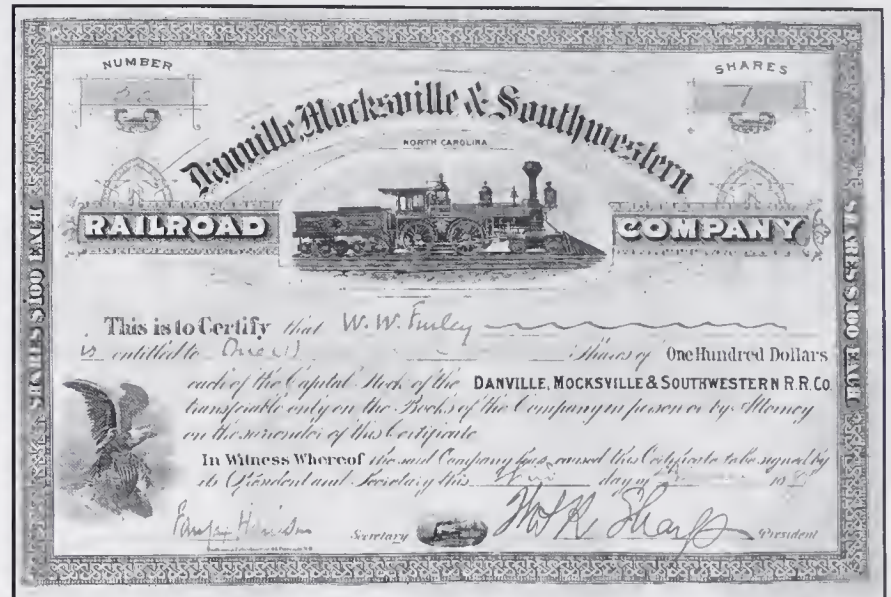 NUMBER
SHARES
7
Danville, Mocksville & Southwestern
NORTH CAROLINA
RAILROAD COMPANY
SHARES $100 EACH
SHARES $100 EACH
This is to Certify that W. W. Finley
is entitled to One (1) Shares of One Hundred Dollars
each of the Capital Stock of the DANVILLE, MOCKSVILLE & SOUTHWESTERN R.R. Co.
transferable only on the Books of the Company in person or by Attorney
on the surrender of this Certificate
In Witness Whereof the said Company has caused this Certificate to be signed by
its President and Secretary this day of
Fairfax Harrison Secretary Sharp President